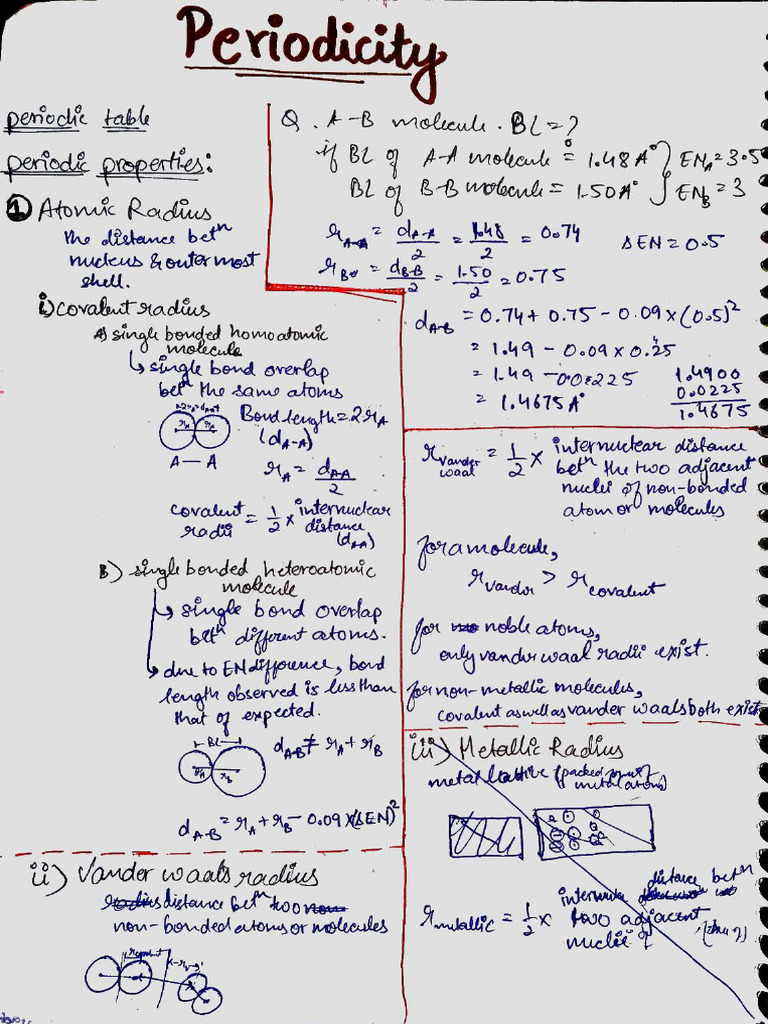 Periodicity
periodic table
periodic properties:
① Atomic Radius
the distance betⁿ
nucleus & outer most
shell.
i) covalent radius
A) single bonded homoatomic
molecule
↳ single bond overlap
betⁿ the same atoms
Bond length = 2r_A
(d_A-A)
r_A r_A
A — A
r_A = d_A-A / 2
covalent radii = 1/2 × internuclear distance
(d_AA)
B) single bonded heteroatomic
molecule
↳ single bond overlap
betⁿ different atoms.
↳ due to EN difference, bond
length observed is less than
that of expected.
BL
r_A r_B
d_A-B ≠ r_A + r_B
d_A-B = r_A + r_B - 0.09 × (ΔEN)²
ii) Vander waals radius
distance betⁿ two
non-bonded atoms or molecules
Q. A-B molecule. BL = ?
if BL of A-A molecule = 1.48 A° } EN_A = 3.5
BL of B-B molecule = 1.50 A° } EN_B = 3
r_A-A = d_A-A / 2 = 1.48 / 2 = 0.74
ΔEN = 0.5
r_B = d_B-B / 2 = 1.50 / 2 = 0.75
d_A-B = 0.74 + 0.75 - 0.09 × (0.5)²
= 1.49 - 0.09 × 0.25
= 1.49 - 0.0225
= 1.4675 A°
1.4900
0.0225
1.4675
r_vander waal = 1/2 × internuclear distance
betⁿ the two adjacent
nuclei of non-bonded
atom or molecules
for a molecule,
r_vander > r_covalent
for noble atoms,
only vander waal radii exist.
for non-metallic molecules,
covalent as well as vander waals both exist
iii) Metallic Radius
metal lattice (packed
metal atoms)
r_metallic = 1/2 ×
distance betⁿ
two adjacent
nuclie of